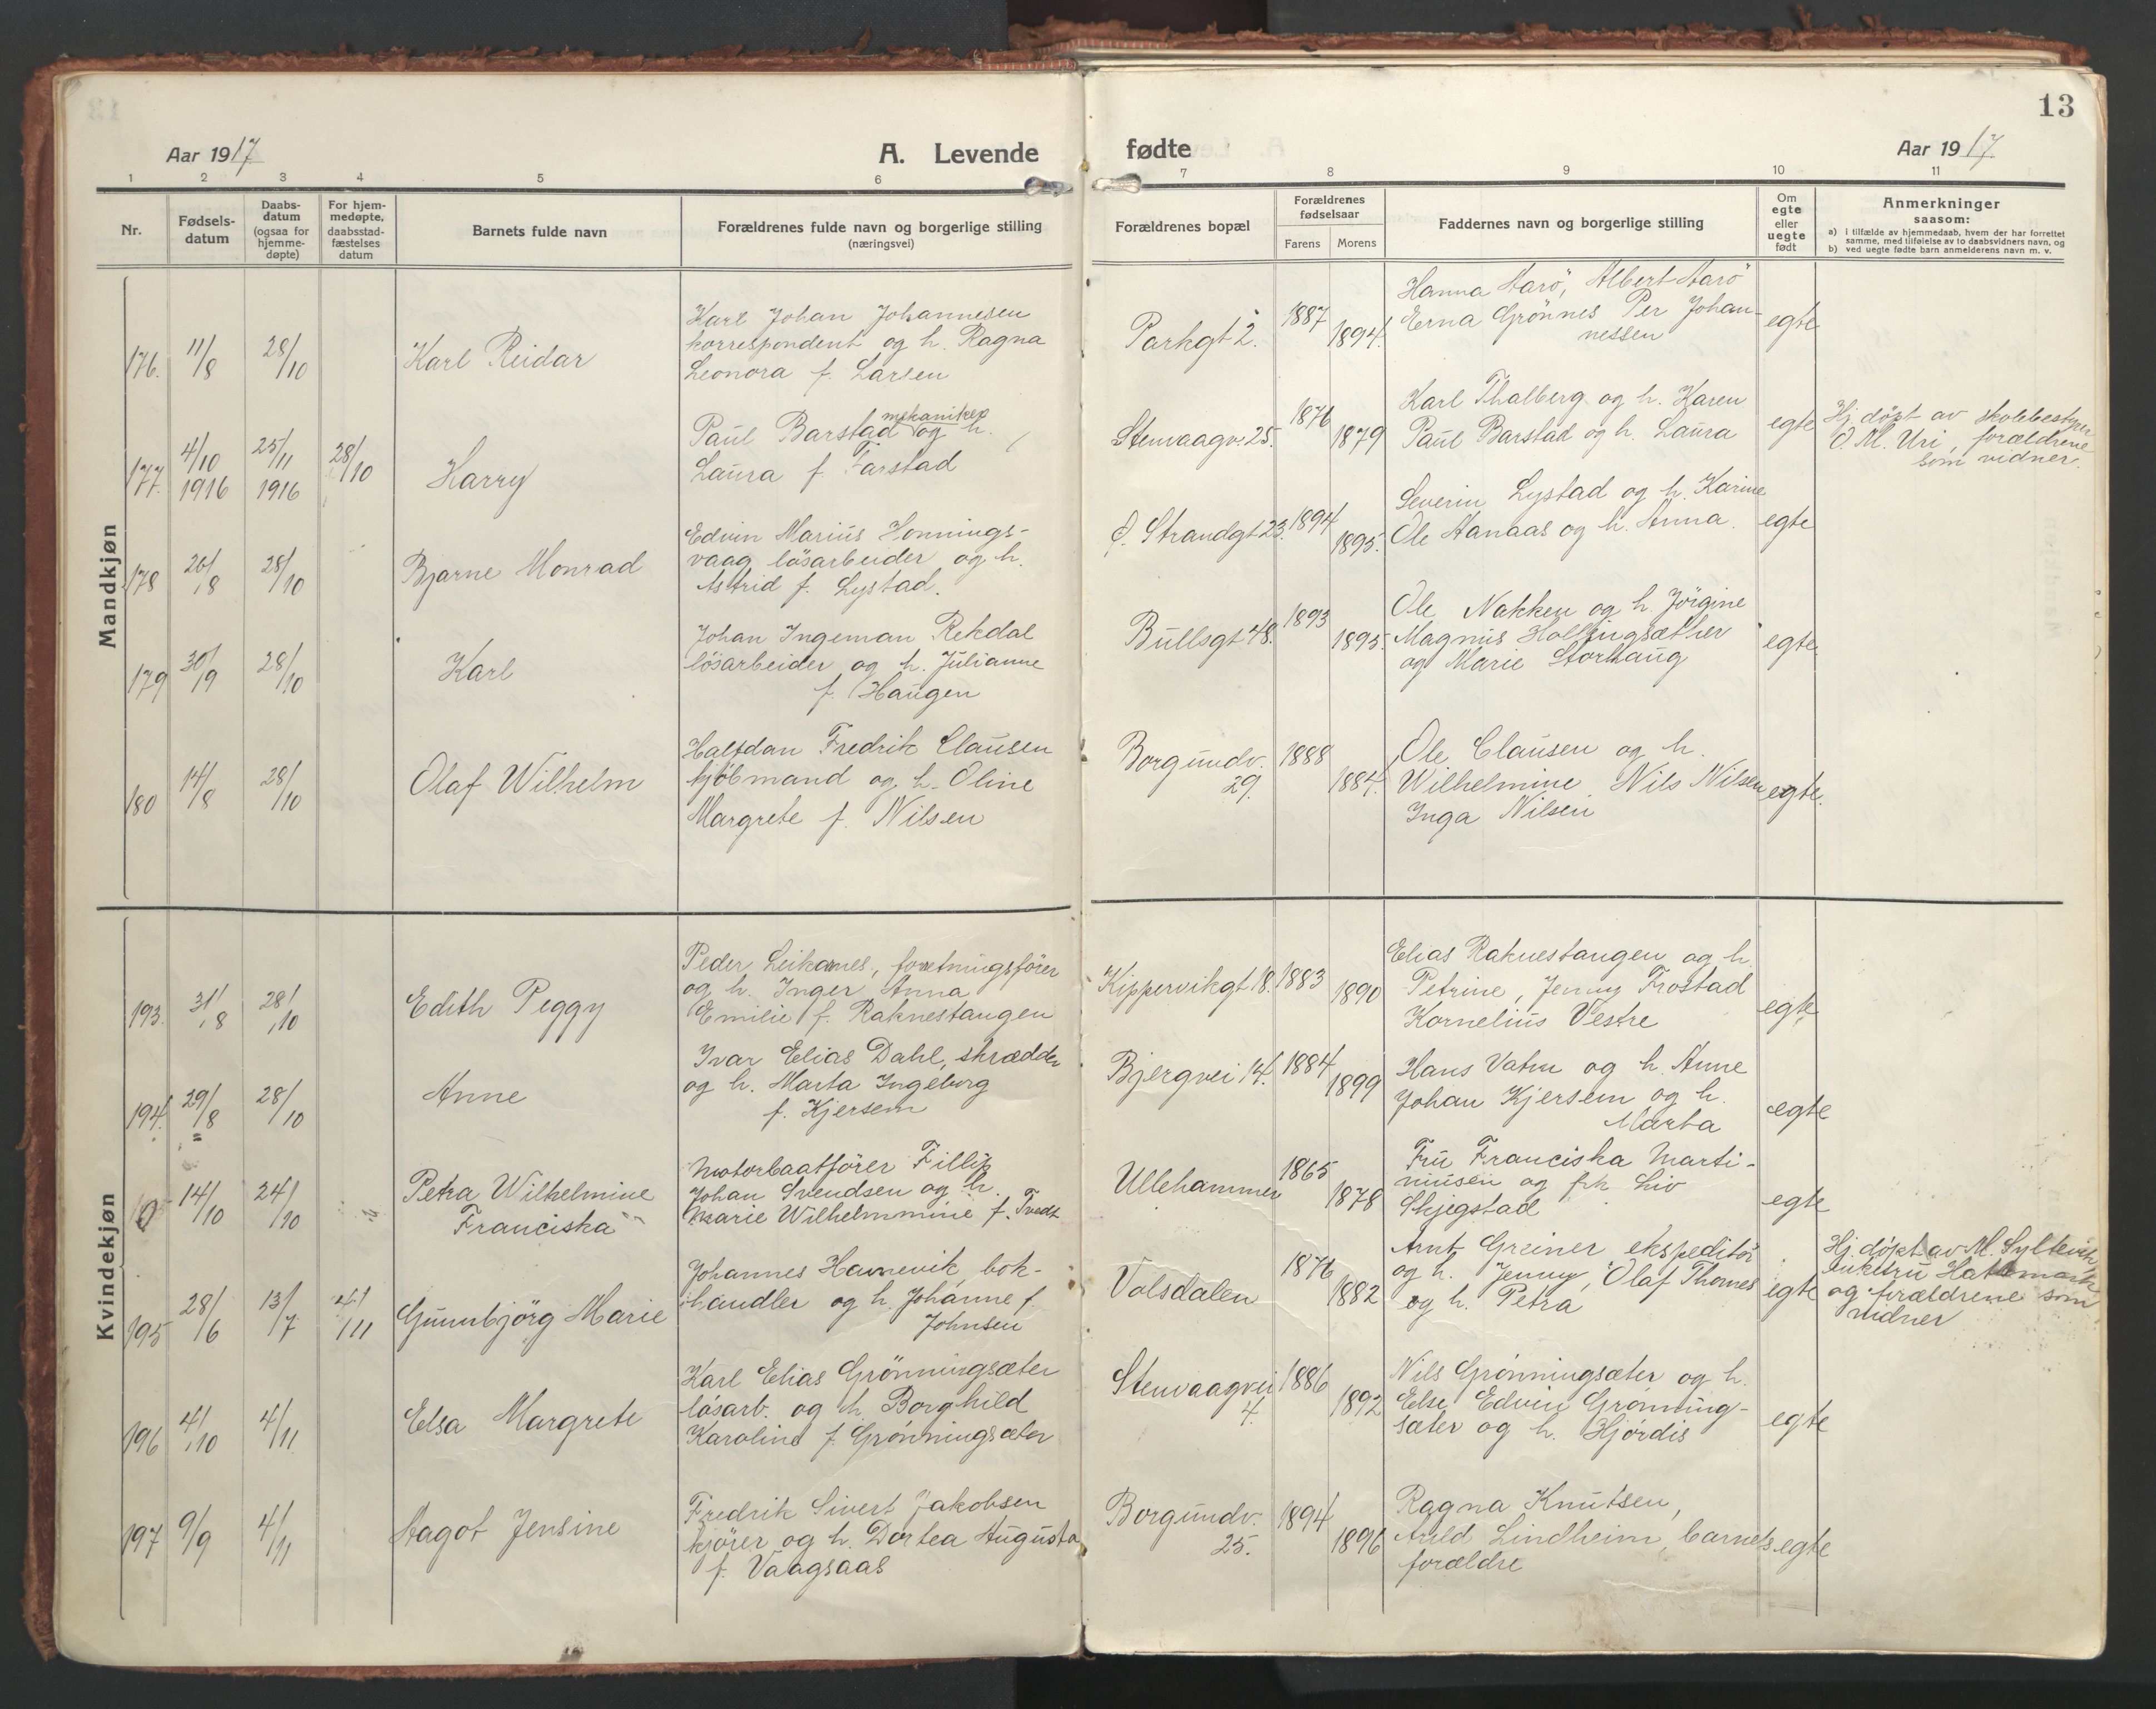 13
Aar 1917
A. Levende
fødte
Aar 1917.
1 2 3 4 5 6 7 8 9 10 11
Nr.
Fødsels-
datum
Daabs-
datum
(ogsaa for
hjemme-
døpte)
For hjem-
medøpte,
daabsstad-
fæstelses
datum
Barnets fulde navn
Forældrenes fulde navn og borgerlige stilling
(næringsvei)
Forældrenes bopæl
Forældrenes
fødselsaar
Farens Morens
Faddernes navn og borgerlige stilling
Om
egte
eller
uegte
født
Anmerkninger
saasom:
a) i tilfælde av hjemmedaab, hvem der har forrettet
samme, med tilføielse av to daabsvidners navn, og
b) ved uegte fødte barn anmelderens navn m. v.
Mandkjøn
176. 11/8 28/10 Karl Reidar
Karl Johan Johannesen
korrespondent og h. Ragna
Leonora f. Larsen
Parkgt 2. 1887 1894.
Hanna Aarö, Albert Aarö
Erna Grönnes Per Johan-
nessen
egte
177. 4/10 1916 25/11 1916 28/10 Harry
mekaniker
Paul Barstad og h.
Laura f. Farstad
Stenvaagv. 25. 1876 1879
Karl Thalberg og h. Karen
Paul Barstad og h. Laura
egte
Hj. døpt av skolebestyrer
O. M. Uri, forældrene
som vidner.
178 26/8 28/10 Bjarne Monrad
Edvin Marius Honnings-
vaag løsarbeider og h.
Astrid f. Lystad.
Ø. Strandgt 23. 1894 1895.
Severin Lystad og h. Karine
Ole Aanaas og h. Anna.
egte
179 30/9 28/10 Karl
Johan Ingeman Rekdal
løsarbeider og h. Julianne
f. Haugen
Bullsgt 48. 1893 1895.
Ole Nakken og h. Jörgine
Magnus Hollingsæther
og Marie Storhaug
egte
180 14/8 28/10 Olaf Wilhelm
Halfdan Fredrik Clausen
kjöbmand og h. Oline
Margrete f. Nilsen
Borgundv.
29. 1888 1884.
Ole Clausen og h.
Wilhelmine Nils Nilsen
Inga Nilsen
egte.
Kvindekjøn
193. 31/8 28/10 Edith Peggy
Peder Leikanes, forretningsfører
og h. Inger Anna
Emilie f. Raknestangen
Kippervikgt 18. 1883 1890
Elias Raknestangen og h.
Petrine, Jenny Frostad
Kornelius Vestre
egte
194. 29/8 28/10 Anne
Ivar Elias Dahl, skrædder
og h. Marta Ingeborg
f. Kjersem
Bjergvei 14. 1884 1899
Hans Vatn og h. Anne
Johan Kjersem og h.
Marta
egte
0 14/10 24/10 Petra Wilhelmine
Franciska
Motorbaatfører Fillip
Johan Svendsen og h.
Marie Wilhelmmine f. Tvedt
Ullehammer 1865 1878
Fru Franciska Marti-
niusen og frk Liv
Skjegstad
egte
195 28/6 13/7 4/11 Gunnbjörg Marie
Johannes Havnevik, bok-
handler og h. Johanne f.
Johnsen
Volsdalen 1876 1882
Arnt Greiner ekspeditör
og h. Jenny, Olaf Thomes
og h. Petra
egte
Hj. døpt av M. Syltevik
Enkefru Hatlemark
og forældrene som
vidner
196 4/10 4/11 Elsa Margrete
Karl Elias Grönningsæter
løsarb. og h. Borghild
Karoline f. Grönningsæter
Stenvaagvei
4. 1886 1892
Nils Grönningsæter og h.
Else Edvin Grönning-
sæter og h. Hjördis
egte
197 9/9 4/11 Aagot Jensine
Fredrik Sivert Jakobsen
kjører og h. Dortea Augusta
f. Vaagsaas
Borgundv.
25. 1894 1896
Ragna Knutsen,
Lindheim, barnets
forældre
egte